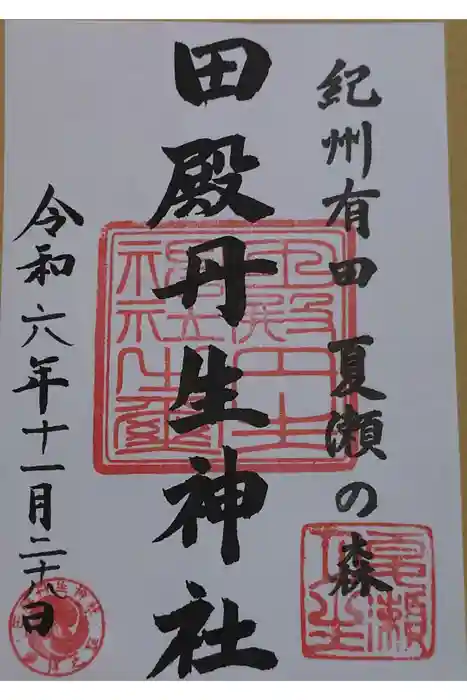 紀州有田 夏瀬の森
田殿丹生神社
令和六年十一月二十八日